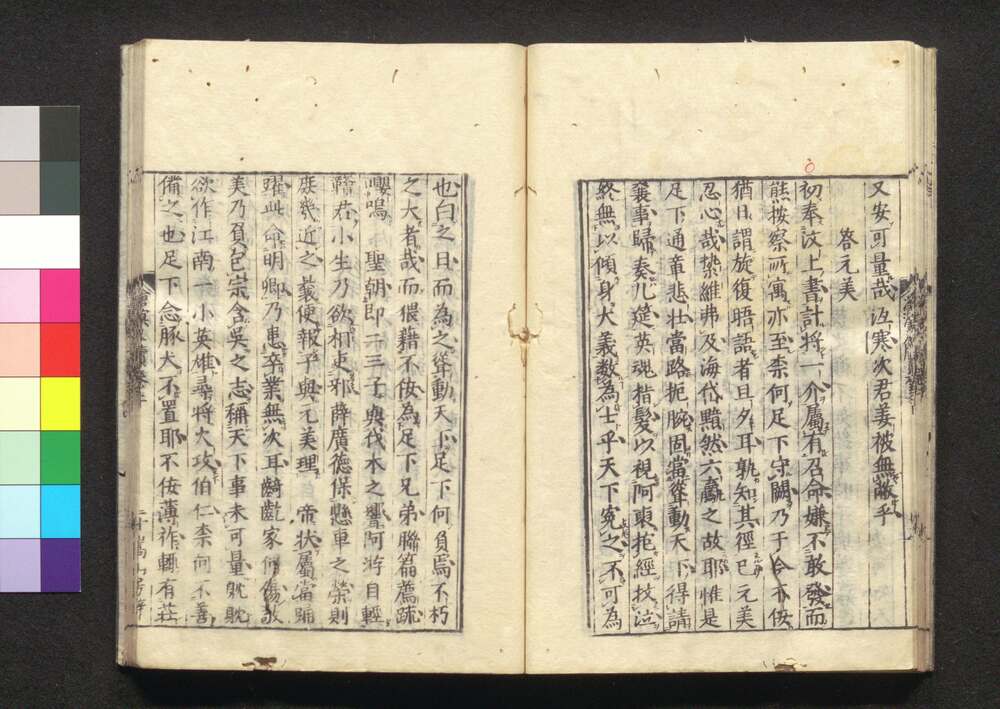 又安可量哉沍寒次君姜被無敝乎
答元美
初奉汶上書計將一介屬有召命嫌不敢發而
熊按察所寓亦至柰何足下守闕乃于今亦侫
猶日謂旋復晤語者旦夕耳孰知其徑已元美
忍心哉縶維弗及海岱黯然六鼇之故耶惟是
足下通章悲壯當路扼腕固當聳動天下得請
襄事歸奏几筵英魂揩髮以視阿東抱經投泣
終無以傾身大義教為士乎天下寃之不可為
也白之日而為之聳動天下足下何負焉不朽
之大者哉而偎藉不侫為足下兄弟聯篇薦疏
嚶嗚聖朝即二三子與伐木之響阿游目輕
鞱君小生乃欲相吏邪薛廣德保懸車之榮則
庶幾近之裁便報乎與元美理帝狀屬當踊
躍此命明卿乃患卒業無次耳齮齕家何傷哉
美乃負包宗含吳之志稱天下事未可量眈眈
欲作江南一小英雄尋將大攻伯仁柰何不善
備之也足下念豚犬不置耶不侫薄祚輙有莊